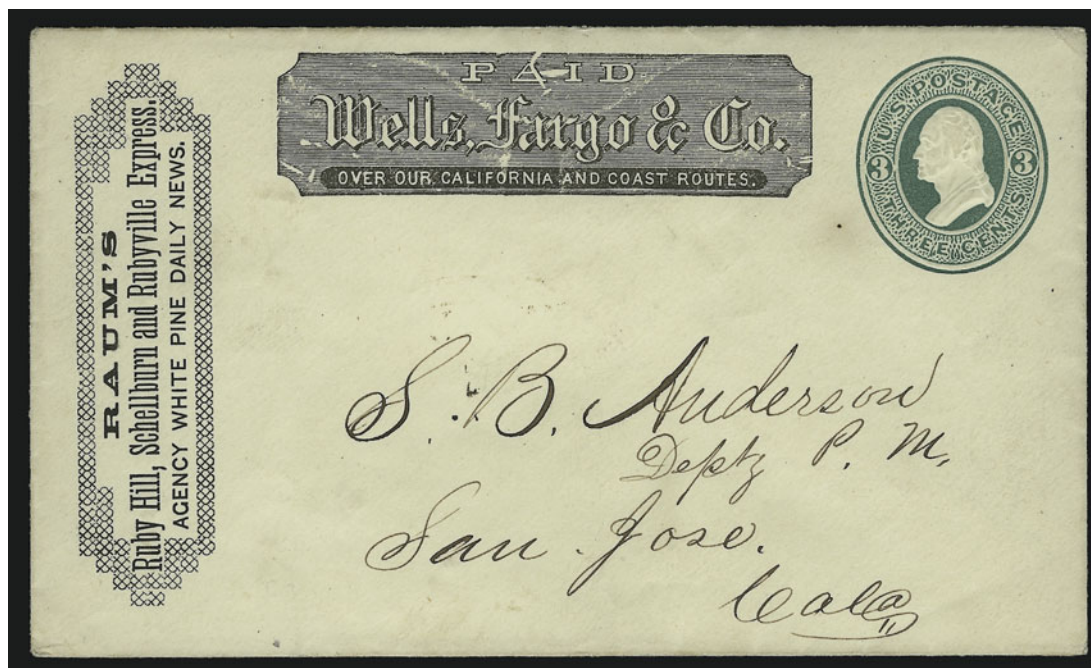 RAUM'S
Ruby Hill, Schellburn and Rubyville Express.
AGENCY WHITE PINE DAILY NEWS.
PAID
Wells, Fargo & Co.
OVER OUR CALIFORNIA AND COAST ROUTES.
U.S. POSTAGE
3 3
THREE CENTS
S. B. Anderson
Depty P. M.
San Jose.
Cala